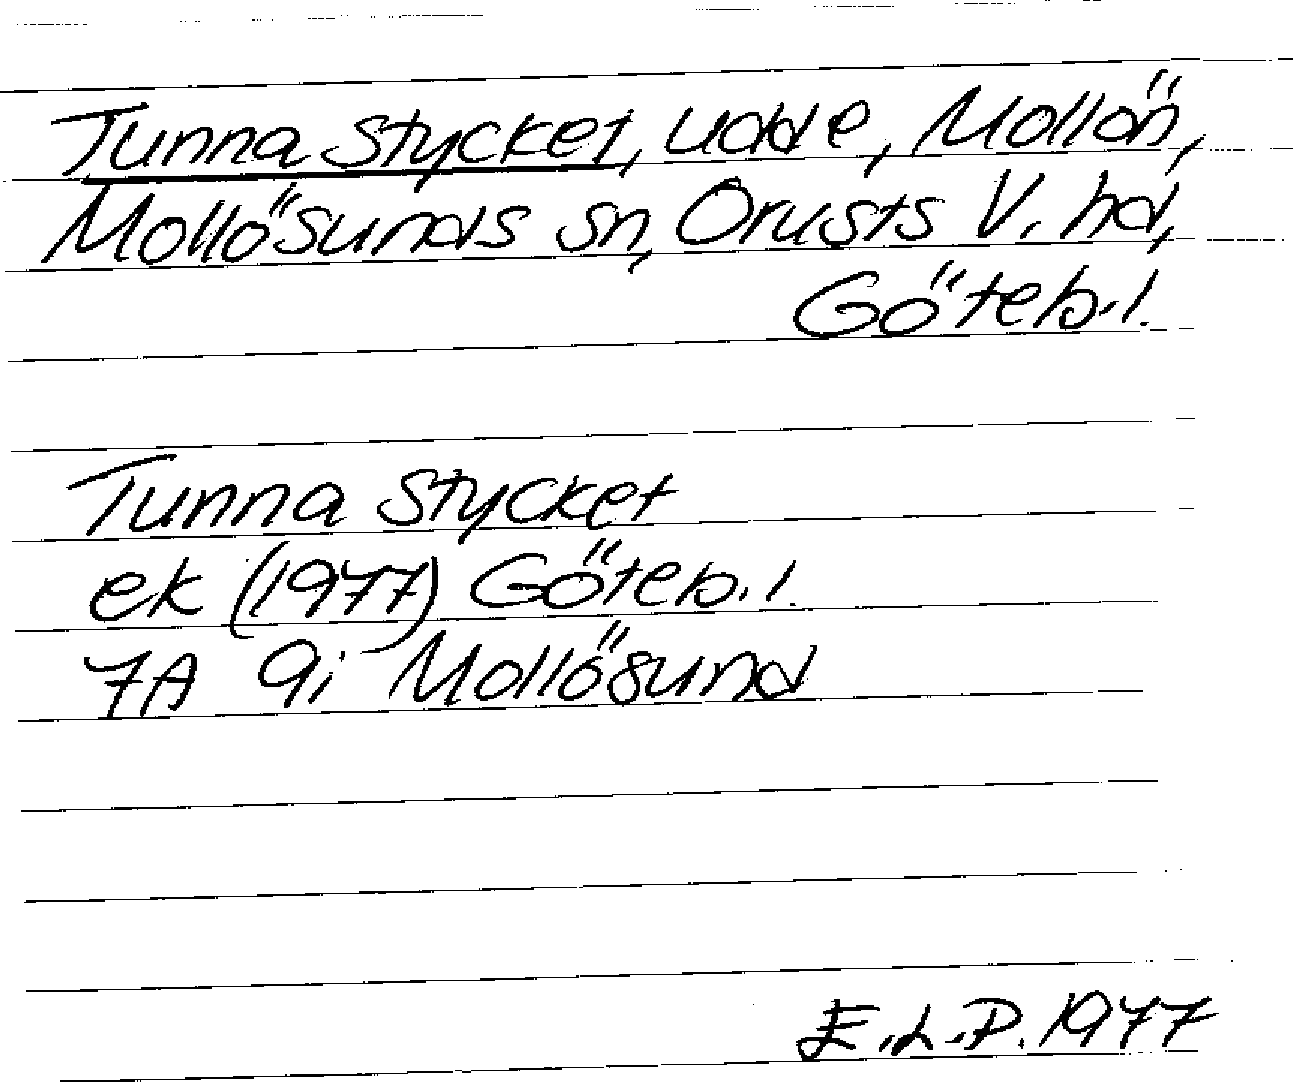 Tunna Stycket, udde, Mollön,
Mollösunds sn, Orusts V. hd,
Göteb.l.
Tunna Stycket
ek (1977) Göteb.l.
7A 9i Mollösund
E.L.P. 1977